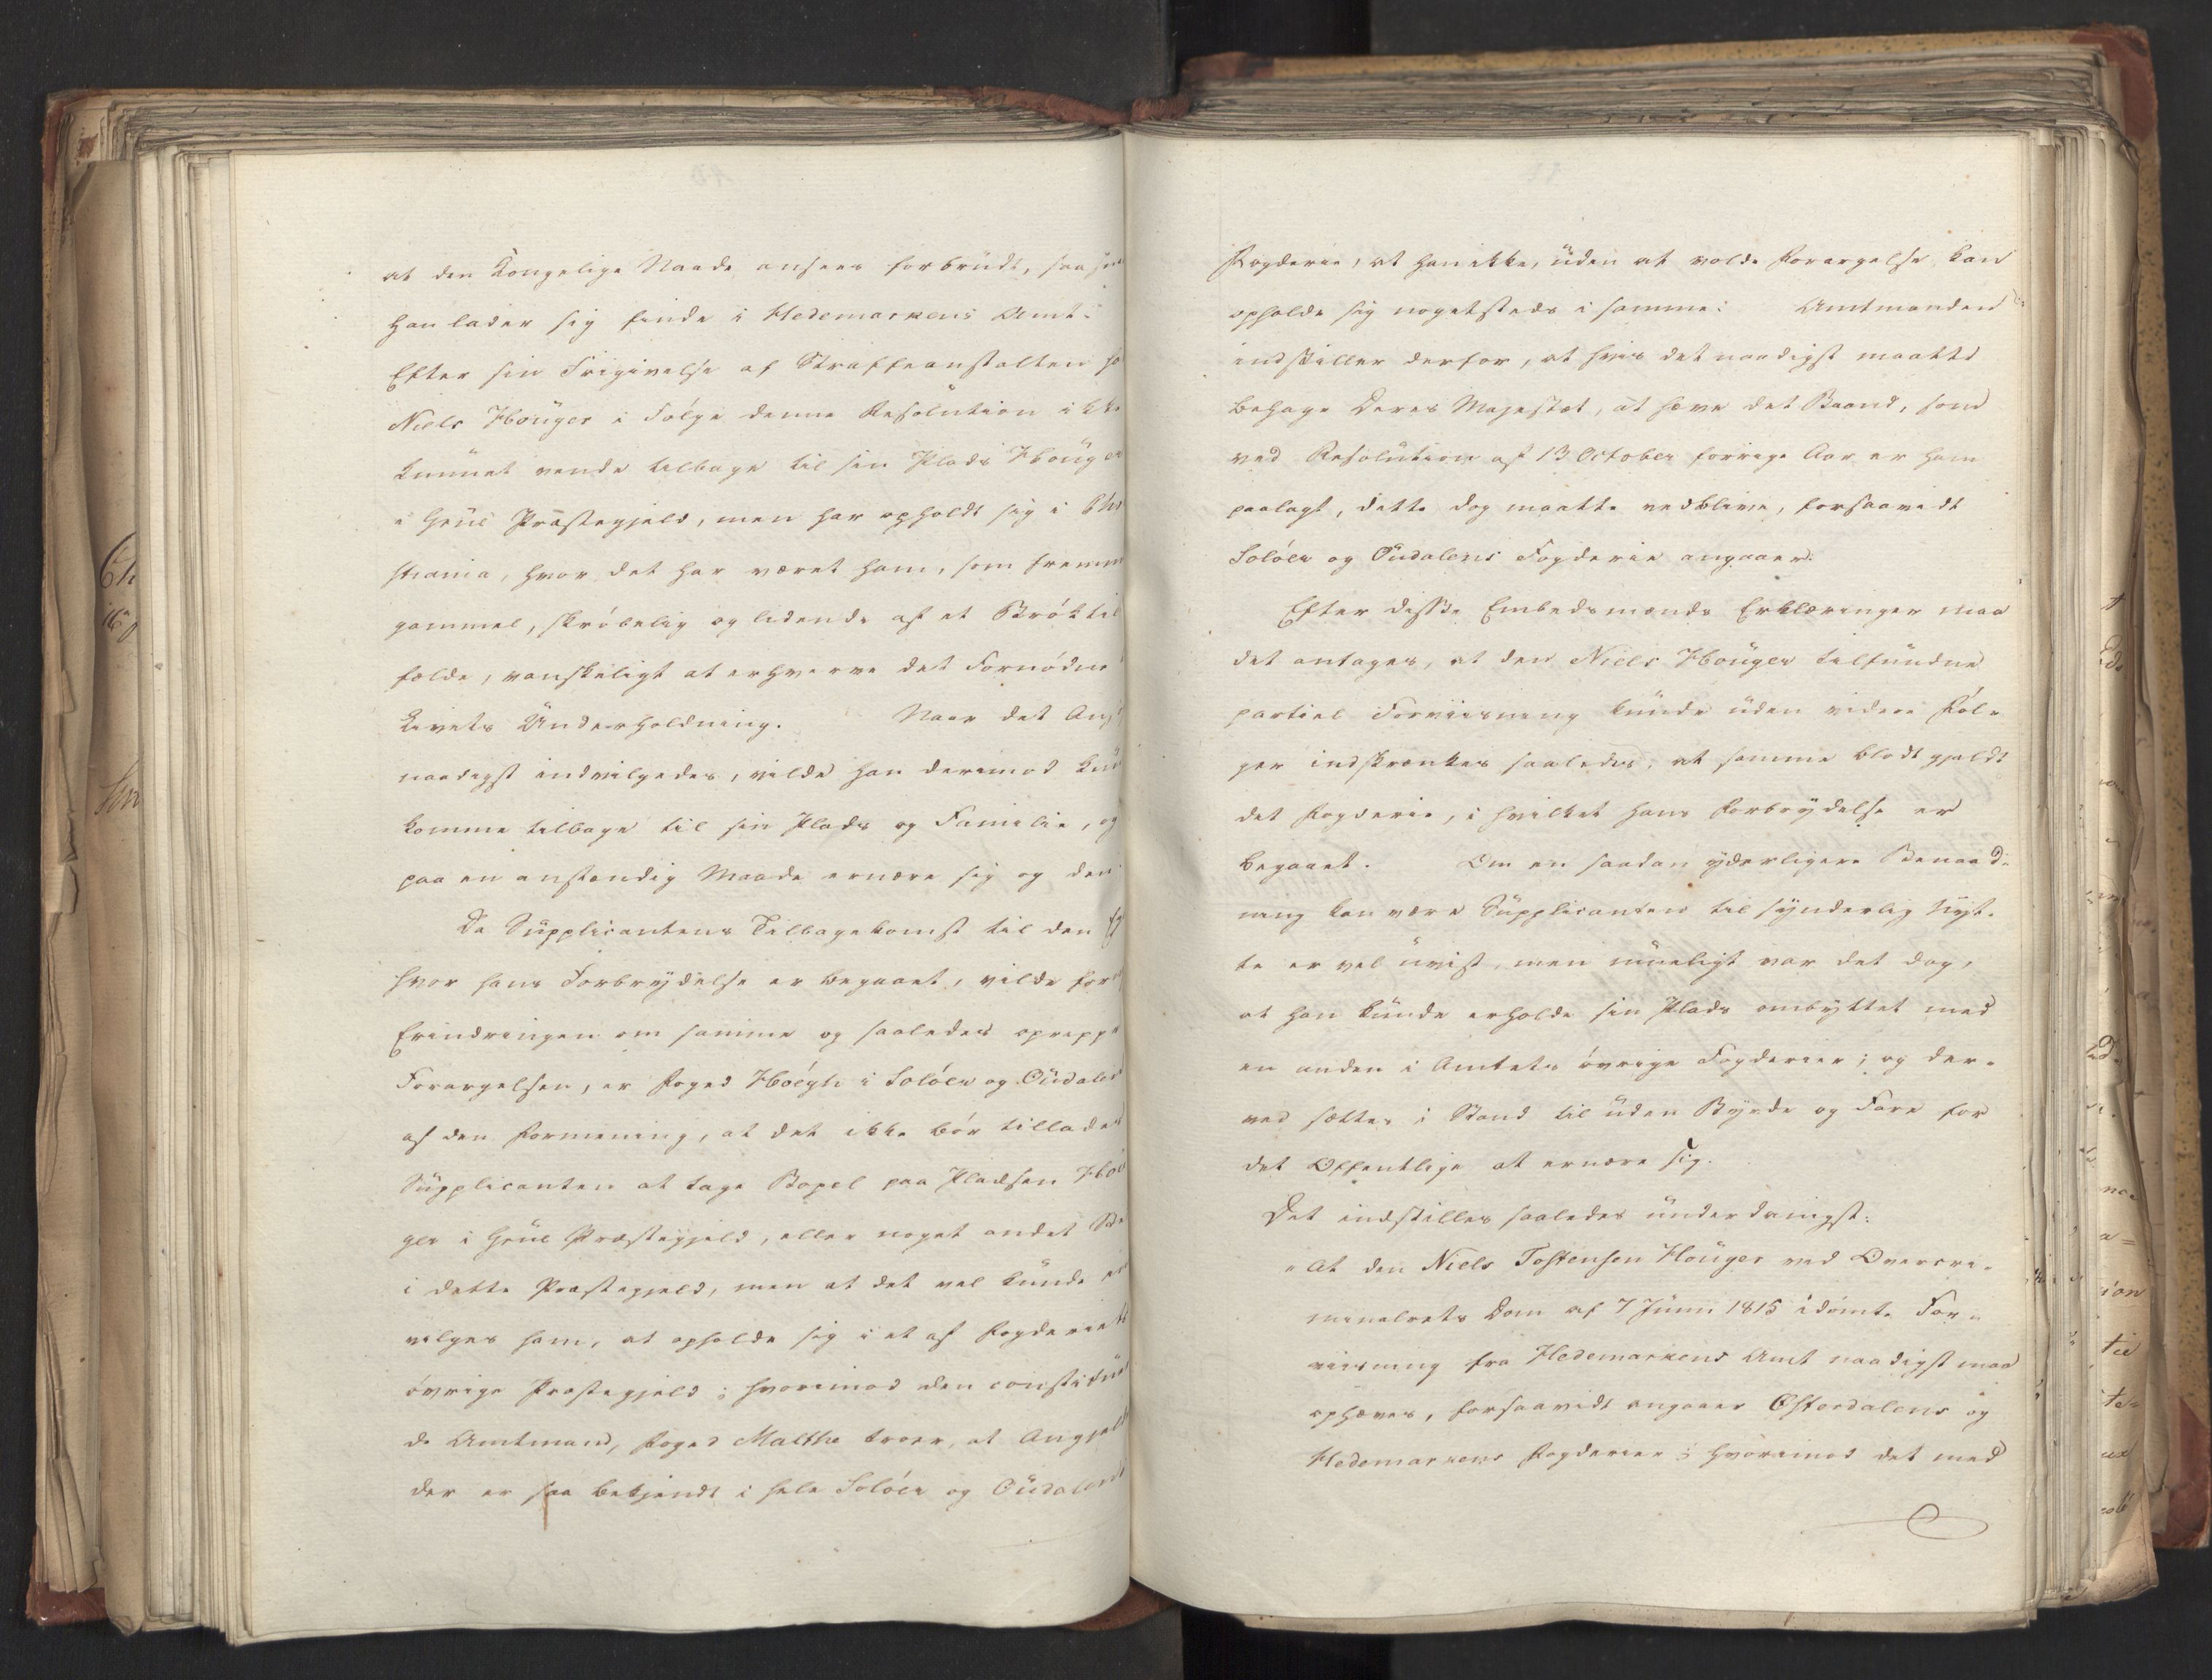 at den Kongelige Naade ansees forbrudt, saasnart
han lader sig finde i Hedemarkens Amt.
Efter sin Frigivelse af Straffeanstalten har
Niels Houger i Følge denne Resolution ikke
kunnet vende tilbage til sin Plads Houger
i Grue Præstegjeld, men har opholdt sig i Chri
stiania, hvor det har været ham, som fremmed
gammel, skrøbelig og lidende af et Broktil
fælde, vanskeligt at erhverve det Fornødne
Livets Underholdning. Naar det Ans
naadigst indvilgedes, vilde han derimod kun
komme tilbage til sin Plads og Familie, og
paa en anstændig Maade ernære sig og dem.
Da Supplicantens Tilbagekomst til den Eg
hvor hans Forbrydelse er begaaet, vilde for
Erindringen om samme og saaledes oprippe
Forargelsen, er Foged Høegh i Soløer og Oudalen
af den Formening, at det ikke bør tillades
Supplicanten at tage Bopel paa Pladsen Hou
ger i Grue Præstegjeld, eller noget andet Ste
i dette Præstegjeld, men at det vel kunde
vilges ham, at opholde sig i et af Fogderiets
øvrige Præstegjeld; hvorimod den constitue
de Amtmand, Foged Malthe troer, at Angjel
der er saa bekjendt i hele Soløer og Oudalens
Fogderie, at han ikke, uden at volde Forargelse kan
opholde sig nogetsteds i samme. Amtmanden
indstiller derfor, at hvis det naadigst maatte
behage Deres Majestæt, at hæve det Baand, som
ved Resolution af 13 October forrige Aar er ham
paalagt, dette dog maatte vedblive, forsaavidt
Soløer og Oudalens Fogderie angaaer.
Efter disse Embedsmænds Erklæringer maa
det antages, at den Niels Houger tilfundne
partiel Forviisning kunde uden videre Føl-
ger indskrænkes saaledes, at samme blodt gjeldt
det Fogderie, i hvilket hans Forbrydelse er
begaaet. Om en saadan yderligere Benaad-
ning kan være Supplicanten til synderlig Nyt-
te er vel uvist, men mueligt var det dog,
at han kunde erholde sin Plads ombyttet med
en anden i Amtets øvrige Fogderier; og der-
ved sættes i Stand til uden Byrde og Fare for
det Offentlige at ernære sig.
Det indstilles saaledes underdanigst:
"At den Niels Tostensen Houger ved Overcri-
minalrets Dom af 7 Juni 1815 idømte For-
viisning fra Hedemarkens Amt naadigst maa
ophæves, forsaavidt angaaer Østerdalens og
Hedemarkens Fogderier; hvorimod det med